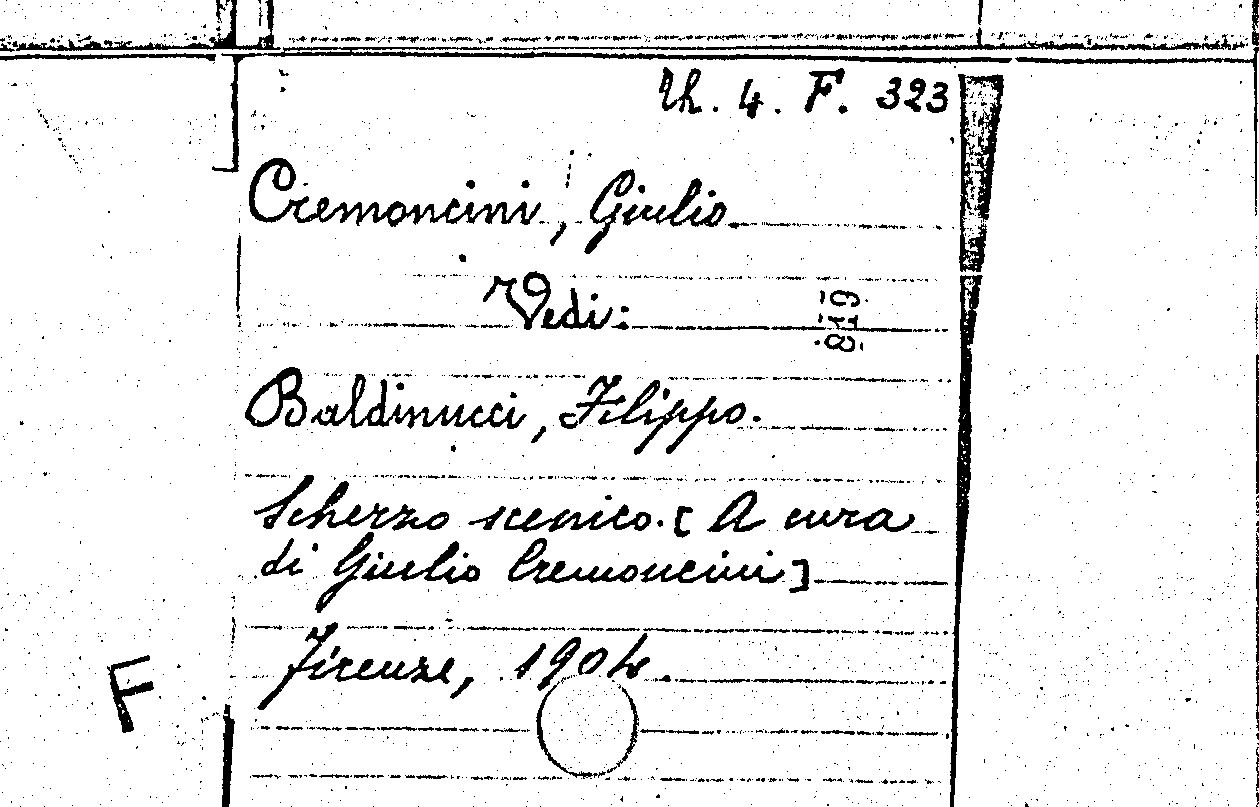 Th. 4. F. 323
Cremoncini, Giulio.
Vedi:
819
Baldinucci, Filippo.
Scherzo scenico. [A cura
di Giulio Cremoncini]
Firenze, 1904.
F